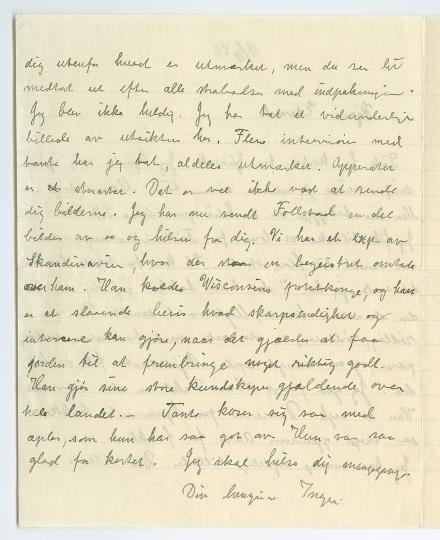 dig utenfor huset er utmærket, men du ser litt
medtat ut efter alle strabadser med indpakningen.
Jeg blev ikke heldig. Jeg har tat et vidunderlig
billede av utsikten her. Flere interiører med
tante har jeg tat, aldeles utmærket. Apparatet
er storartet. Det er vel ikke værd at sende
dig billderne. Jeg har nu sendt Follestad en del
bilder av os og hilsen fra dig. Vi har et exp. av
Skandinavien, hvor der staar en begeistret omtale
over ham. Han kaldes Wisconsins potetkonge, og han
er et slaaende bevis hvad skarpsindighet og
interesse kan gjøre, naar det gjælder at faa
jorden til at frembringe noget riktig godt.
Han gjør sine store kundskaper gjældende over
hele landet. — Tante koser sig saa med
æpler, som hun har saa got av. Hun var saa
glad for kortet. Jeg skal hilse dig mangegange.
Din hengivne Inga.